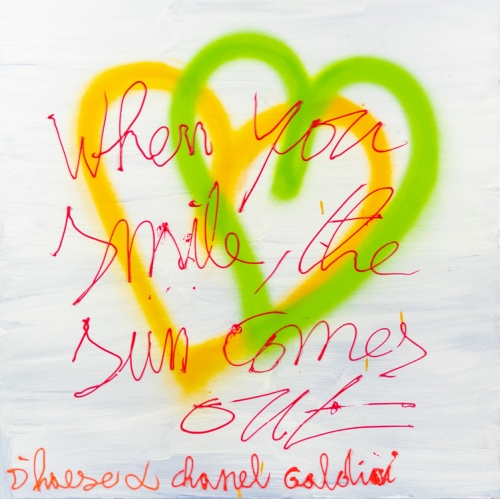 When you
smile, the
sun comes
out
chanel Galdini